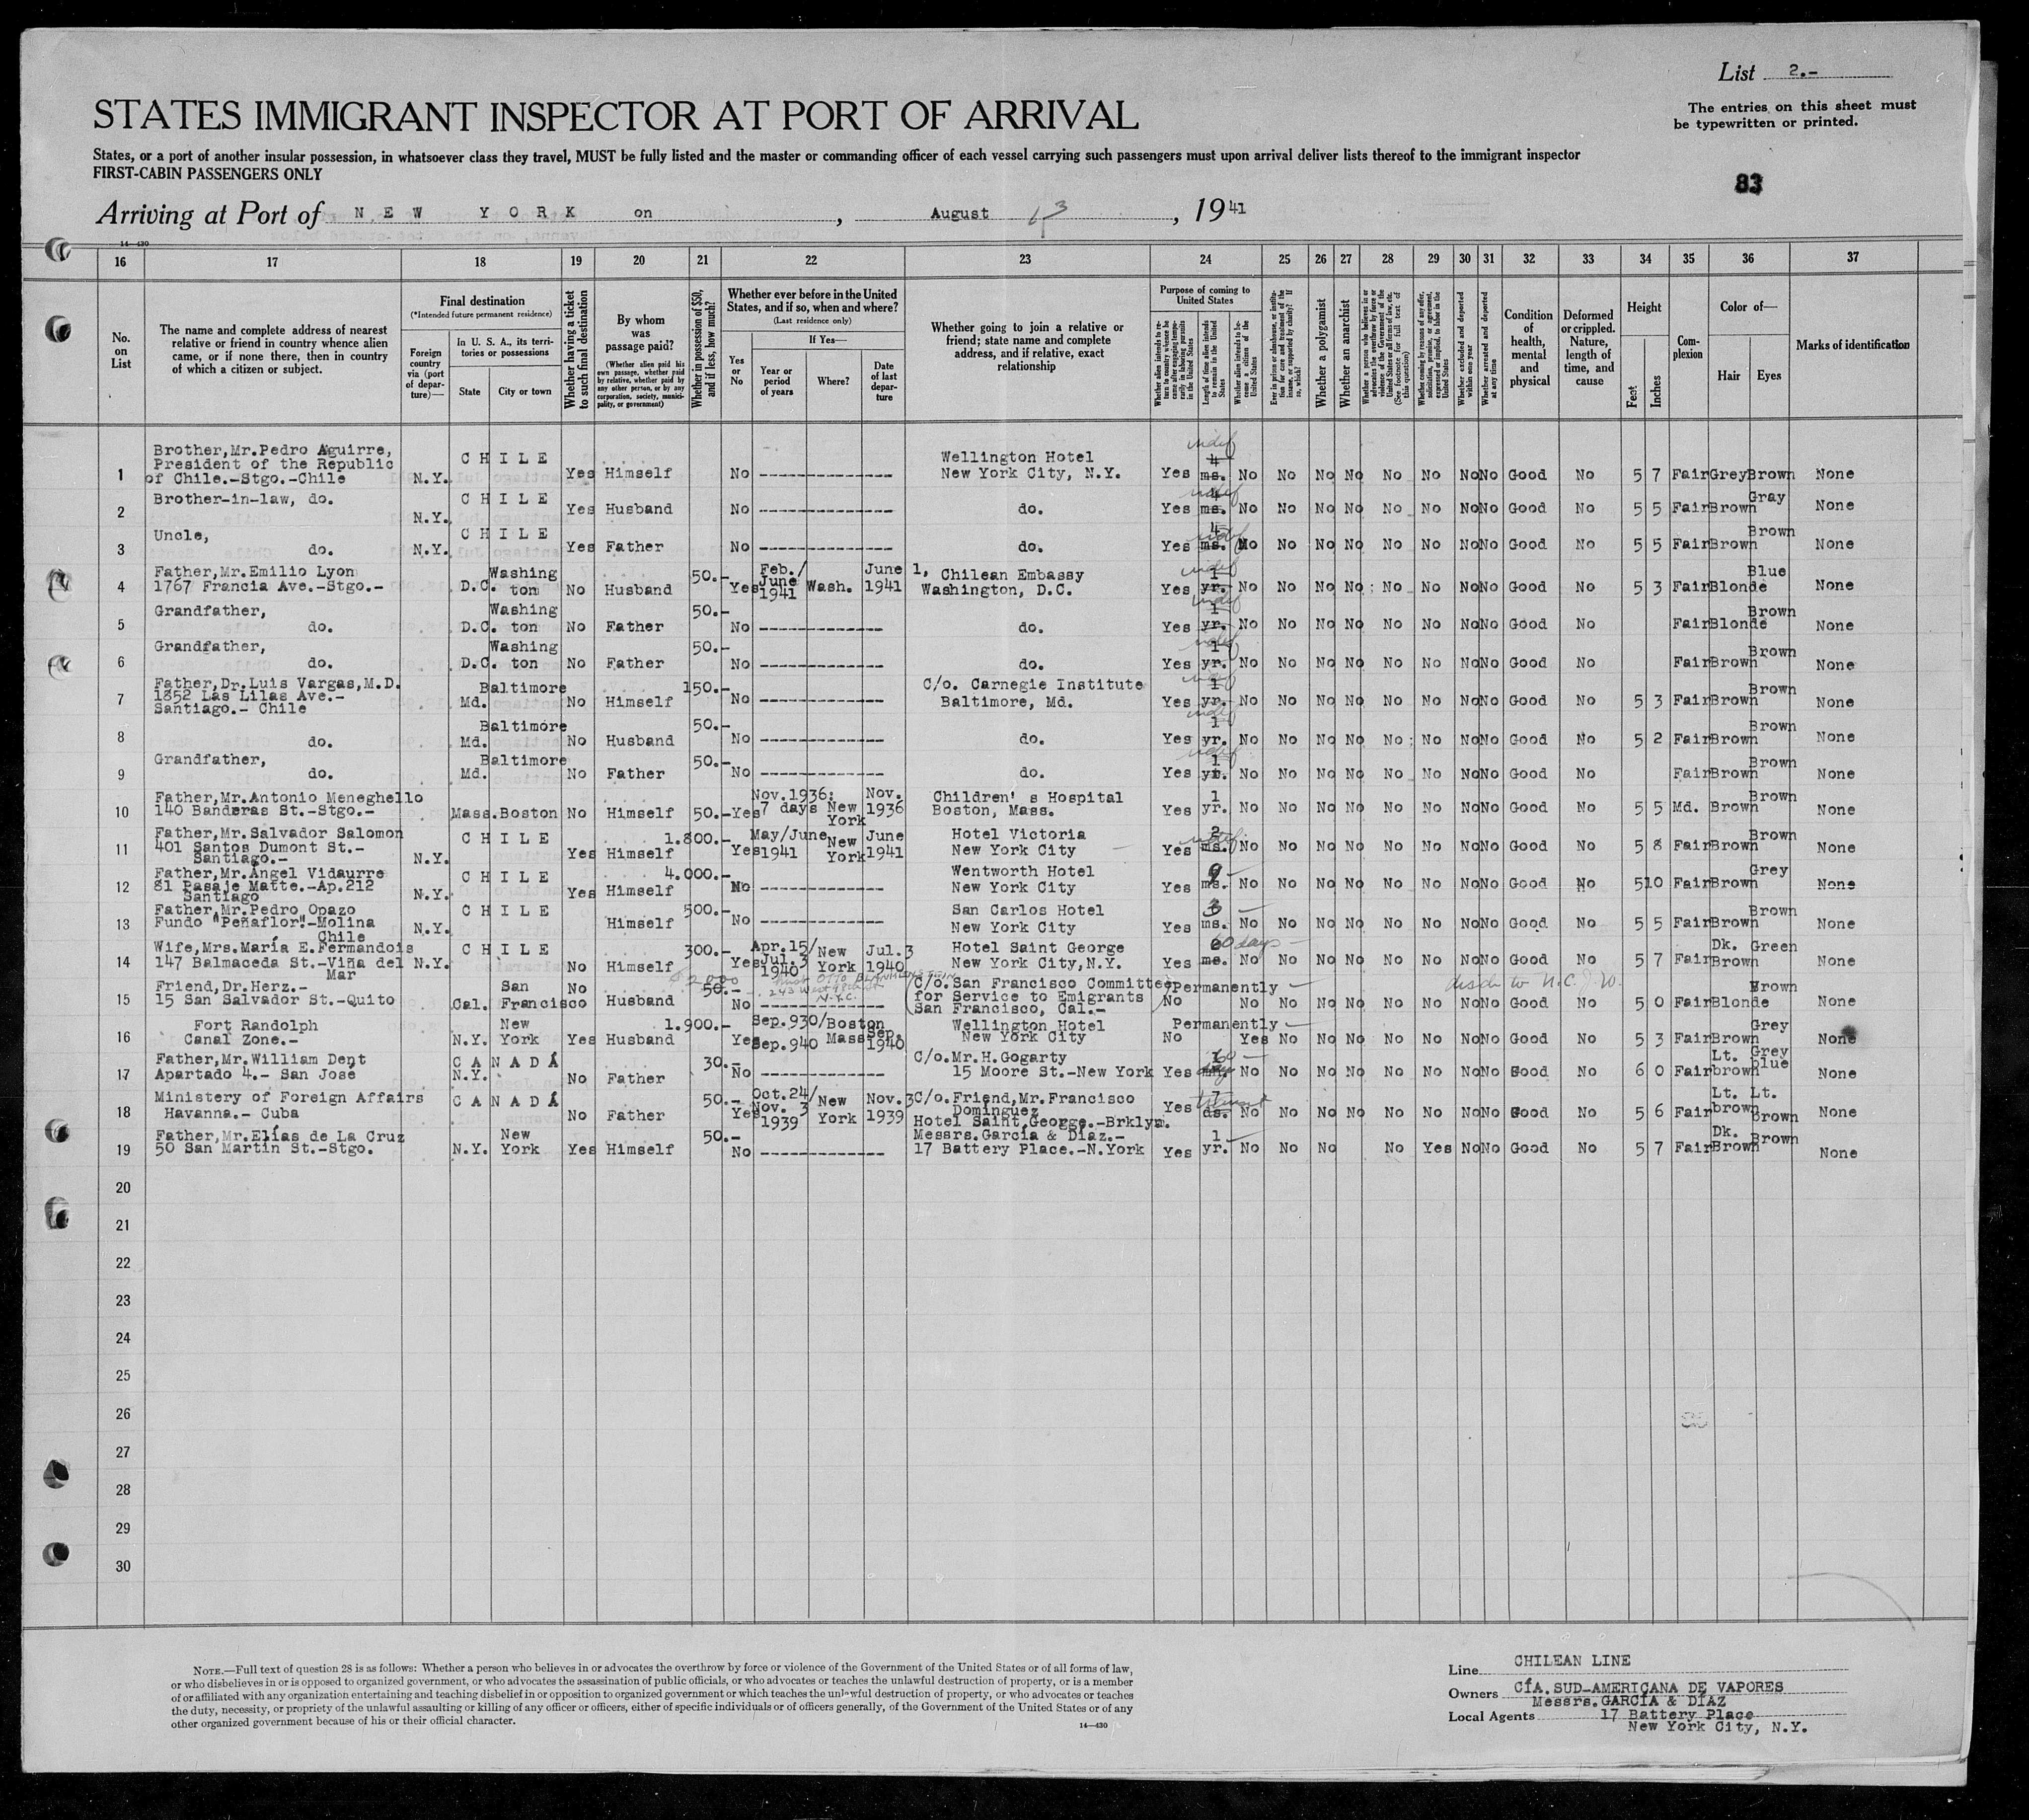 List 2.-
The entries on this sheet must
be typewritten or printed.
STATES IMMIGRANT INSPECTOR AT PORT OF ARRIVAL
States, or a port of another insular possession, in whatsoever class they travel, MUST be fully listed and the master or commanding officer of each vessel carrying such passengers must upon arrival deliver lists thereof to the immigrant inspector
FIRST-CABIN PASSENGERS ONLY
83
Arriving at Port of NEW YORK on , August 13, 1941
14—430
16 17 18 19 20 21 22 23 24 25 26 27 28 29 30 31 32 33 34 35 36 37
No. on List
The name and complete address of nearest relative or friend in country whence alien came, or if none there, then in country of which a citizen or subject.
Final destination
(*Intended future permanent residence)
Foreign country via (port of departure)—
In U. S. A., its territories or possessions
State
City or town
Whether having a ticket to such final destination
By whom was passage paid?
(Whether alien paid his own passage, whether paid by relative, whether paid by any other person, or by any corporation, society, municipality, or government)
Whether in possession of $50, and if less, how much?
Whether ever before in the United States, and if so, when and where?
(Last residence only)
Yes or No
If Yes—
Year or period of years
Where?
Date of last departure
Whether going to join a relative or friend; state name and complete address, and if relative, exact relationship
Purpose of coming to United States
Whether alien intends to return to country whence he came after engaging temporarily in laboring pursuits in the United States
Length of time alien intends to remain in the United States
Whether alien intends to become a citizen of the United States
Ever in prison or almshouse, or institution for care and treatment of the insane, or supported by charity? If so, which?
Whether a polygamist
Whether an anarchist
Whether a person who believes in or advocates the overthrow by force or violence of the Government of the United States or all forms of law, etc. (See footnote for full text of this question)
Whether coming by reasons of any offer, solicitation, promise, or agreement, expressed or implied, to labor in the United States
Whether excluded and deported within one year
Whether arrested and deported at any time
Condition of health, mental and physical
Deformed or crippled. Nature, length of time, and cause
Height
Feet
Inches
Complexion
Color of—
Hair
Eyes
Marks of identification
1 Brother,Mr.Pedro Aguirre, President of the Republic of Chile.-Stgo.-Chile N.Y. CHILE Yes Himself No ---------------- Wellington Hotel New York City, N.Y. Yes indef 4 ms. No No No No No No No No Good No 5 7 Fair Grey Brown None
2 Brother-in-law, do. N.Y. CHILE Yes Husband No ---------------- do. Yes indef 4 ms. No No No No No No No No Good No 5 5 Fair Brown Gray None
3 Uncle, do. N.Y. CHILE Yes Father No ---------------- do. Yes indef 4 ms. No No No No No No No No Good No 5 5 Fair Brown Brown None
4 Father,Mr.Emilio Lyon 1767 Francia Ave.-Stgo.- D.C. Washing ton No Husband 50.- Yes Feb./ June 1941 Wash. June 1, 1941 Chilean Embassy Washington, D.C. Yes indef 1 yr. No No No No No No No No Good No 5 3 Fair Blonde Blue None
5 Grandfather, do. D.C. Washing ton No Father 50.- No --------------- do. Yes indef 1 yr. No No No No No No No No Good No Fair Blonde Brown None
6 Grandfather, do. D.C. Washing ton No Father 50.- No --------------- do. Yes indef 1 yr. No No No No No No No No Good No Fair Brown Brown None
7 Father,Dr.Luis Vargas,M.D. 1852 Las Lilas Ave.- Santiago.- Chile Md. Baltimore No Himself 150.- No --------------- C/o. Carnegie Institute Baltimore, Md. Yes indef 1 yr. No No No No No No No No Good No 5 3 Fair Brown Brown None
8 do. Md. Baltimore No Husband 50.- No --------------- do. Yes indef 1 yr. No No No No No No No No Good No 5 2 Fair Brown Brown None
9 Grandfather, do. Md. Baltimore No Father 50.- No --------------- do. Yes indef 1 yr. No No No No No No No No Good No Fair Brown Brown None
10 Father,Mr.Antonio Meneghello 140 Banderas St.-Stgo.- Mass. Boston No Himself 50.- Yes Nov.1936: 7 days New York Nov. 1936 Children's Hospital Boston, Mass. Yes 1 yr. No No No No No No No No Good No 5 5 Md. Brown Brown None
11 Father,Mr.Salvador Salomon 401 Santos Dumont St.- Santiago.- N.Y. CHILE Yes Himself 1.800.- Yes May/June 1941 New York June 1941 Hotel Victoria New York City Yes indef 2 ms. No No No No No No No No Good No 5 8 Fair Brown Brown None
12 Father,Mr.Angel Vidaurre 81 Pasaje Matte.-Ap.212 Santiago N.Y. CHILE Yes Himself 4.000.- No --------------- Wentworth Hotel New York City Yes ms. No No No No No No No No Good No 5 10 Fair Brown Grey None
13 Father,Mr.Pedro Opazo Fundo "Peñaflor".-Molina Chile N.Y. CHILE Himself 500.- No --------------- San Carlos Hotel New York City Yes 3 ms. No No No No No No No No Good No 5 5 Fair Brown Brown None
14 Wife,Mrs.María E.Fermandois 147 Balmaceda St.-Viña del Mar N.Y. CHILE No Himself 300.- Yes Apr.15/ Jul.3 1940 New York Jul.3 1940 Hotel Saint George New York City,N.Y. Yes 60 days ms. No No No No No No No No Good No 5 7 Fair Dk. Brown Green None
15 Friend,Dr.Herz.- 15 San Salvador St.-Quito Cal. San Francisco No Husband $2,000 50.- No --------------- OTTO BLANKENSTEIN 243 West N.Y.C. C/o.San Francisco Committee for Service to Emigrants San Francisco, Cal.- Permanently No No No No No No No No No Good No 5 0 Fair Blonde Brown None
16 Fort Randolph Canal Zone.- N.Y. New York Yes Husband 1.900.- Yes Sep.930/ Sep.940 Boston Mass Sep. 1940 Wellington Hotel New York City Permanently No Yes No No No No No No No Good No 5 3 Fair Brown Grey None
17 Father,Mr.William Dent Apartado 4.- San José N.Y. CANADÁ No Father 30.- No --------------- C/o.Mr.H.Gogarty 15 Moore St.-New York Yes 60 No No No No No No No No Good No 6 0 Fair Lt. brown Grey blue None
18 Ministery of Foreign Affairs Havanna.- Cuba CANADÁ No Father 50.- Yes Oct.24/ Nov. 3 1939 New York Nov.3 1939 C/o.Friend,Mr.Francisco Domínguez Hotel Saint George.-Brklyn. Yes 7 ds. No No No No No No No No Good No 5 6 Fair Lt. brown Lt. brown None
19 Father,Mr.Elías de La Cruz 50 San Martin St.-Stgo. N.Y. New York Yes Himself 50.- No --------------- Messrs.García & Díaz.- 17 Battery Place.-N.York Yes 1 yr. No No No No Yes No No Good No 5 7 Fair Dk. Brown Brown None
20
21
22
23
24
25
26
27
28
29
30
NOTE.—Full text of question 28 is as follows: Whether a person who believes in or advocates the overthrow by force or violence of the Government of the United States or of all forms of law,
or who disbelieves in or is opposed to organized government, or who advocates the assassination of public officials, or who advocates or teaches the unlawful destruction of property, or is a member
of or affiliated with any organization entertaining and teaching disbelief in or opposition to organized government or which teaches the unlawful destruction of property, or who advocates or teaches
the duty, necessity, or propriety of the unlawful assaulting or killing of any officer or officers, either of specific individuals or of officers generally, of the Government of the United States or of any
other organized government because of his or their official character.
14—430
Line CHILEAN LINE
Owners CÍA.SUD-AMERICANA DE VAPORES
Messrs.GARCÍA & DÍAZ
Local Agents 17 Battery Place
New York City, N.Y.